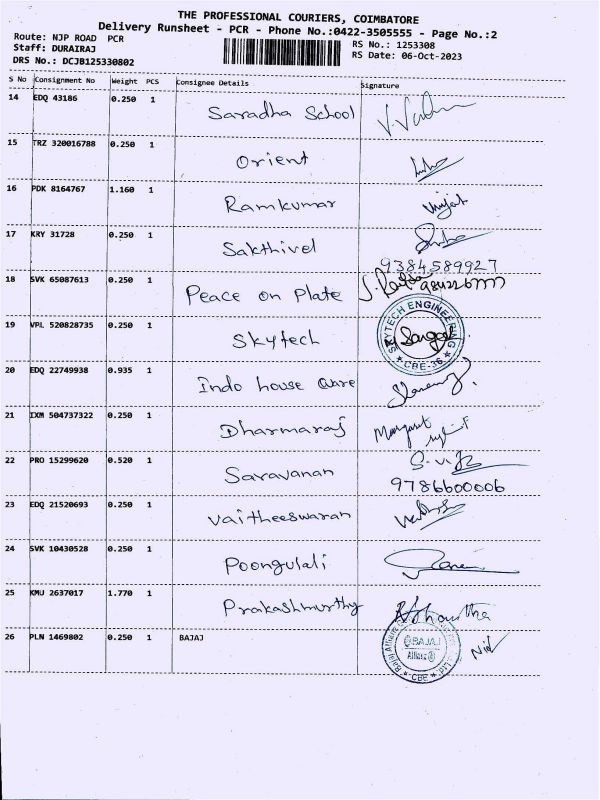 THE PROFESSIONAL COURIERS, COIMBATORE
Delivery Runsheet - PCR - Phone No.:0422-3505555 - Page No.:2
Route: NJP ROAD PCR
RS No.: 1253308
Staff: DURAIRAJ
RS Date: 06-Oct-2023
DRS No.: DCJB125330802
S No Consignment No Weight PCS Consignee Details Signature
14 EDQ 43186 0.250 1 Saradha School
15 TRZ 320016788 0.250 1 Orient
16 PDK 8164767 1.160 1 Ramkumar
17 KRY 31728 0.250 1 Sakthivel
9384589927
18 SVK 65087613 0.250 1 Peace on Plate
19 VPL 520828735 0.250 1 Skytech
SKYTECH ENGINEERING
CBE-36
20 EDQ 22749938 0.935 1 Indo house ware
21 IXM 504737322 0.250 1 Dharmaraj Margaret
22 PRO 15299620 0.520 1 Saravanan
9786600006
23 EDQ 21520693 0.250 1 Vaitheeswaran
24 SVK 10430528 0.250 1 Poongulali
25 KMU 2637017 1.770 1 Prakashmurthy
26 PLN 1469802 0.250 1 BAJAJ
BAJAJ
Allianz
CBE